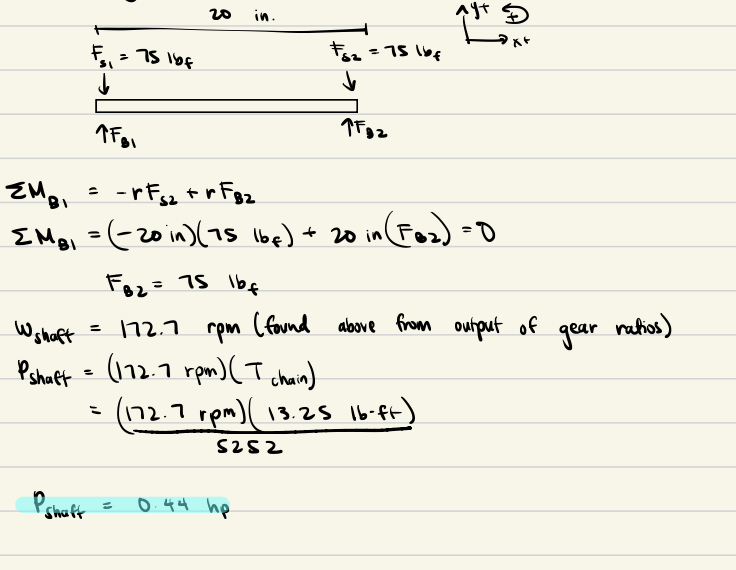 20 in.
y+ +
x+
F_S1 = 75 lbf F_S2 = 75 lbf
↓ ↓
↑F_B1 ↑F_B2
ΣM_B1 = -rF_S2 + rF_B2
ΣM_B1 = (-20 in)(75 lbf) + 20 in(F_B2) = 0
F_B2 = 75 lbf
ω_shaft = 172.7 rpm (found above from output of gear ratios)
P_shaft = (172.7 rpm)(T_chain)
= (172.7 rpm)(13.25 lb-ft)
5252
P_shaft = 0.44 hp